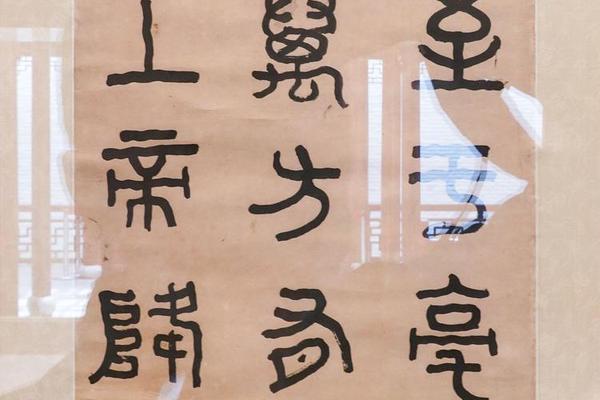 至于亳
萬方有
上帝降